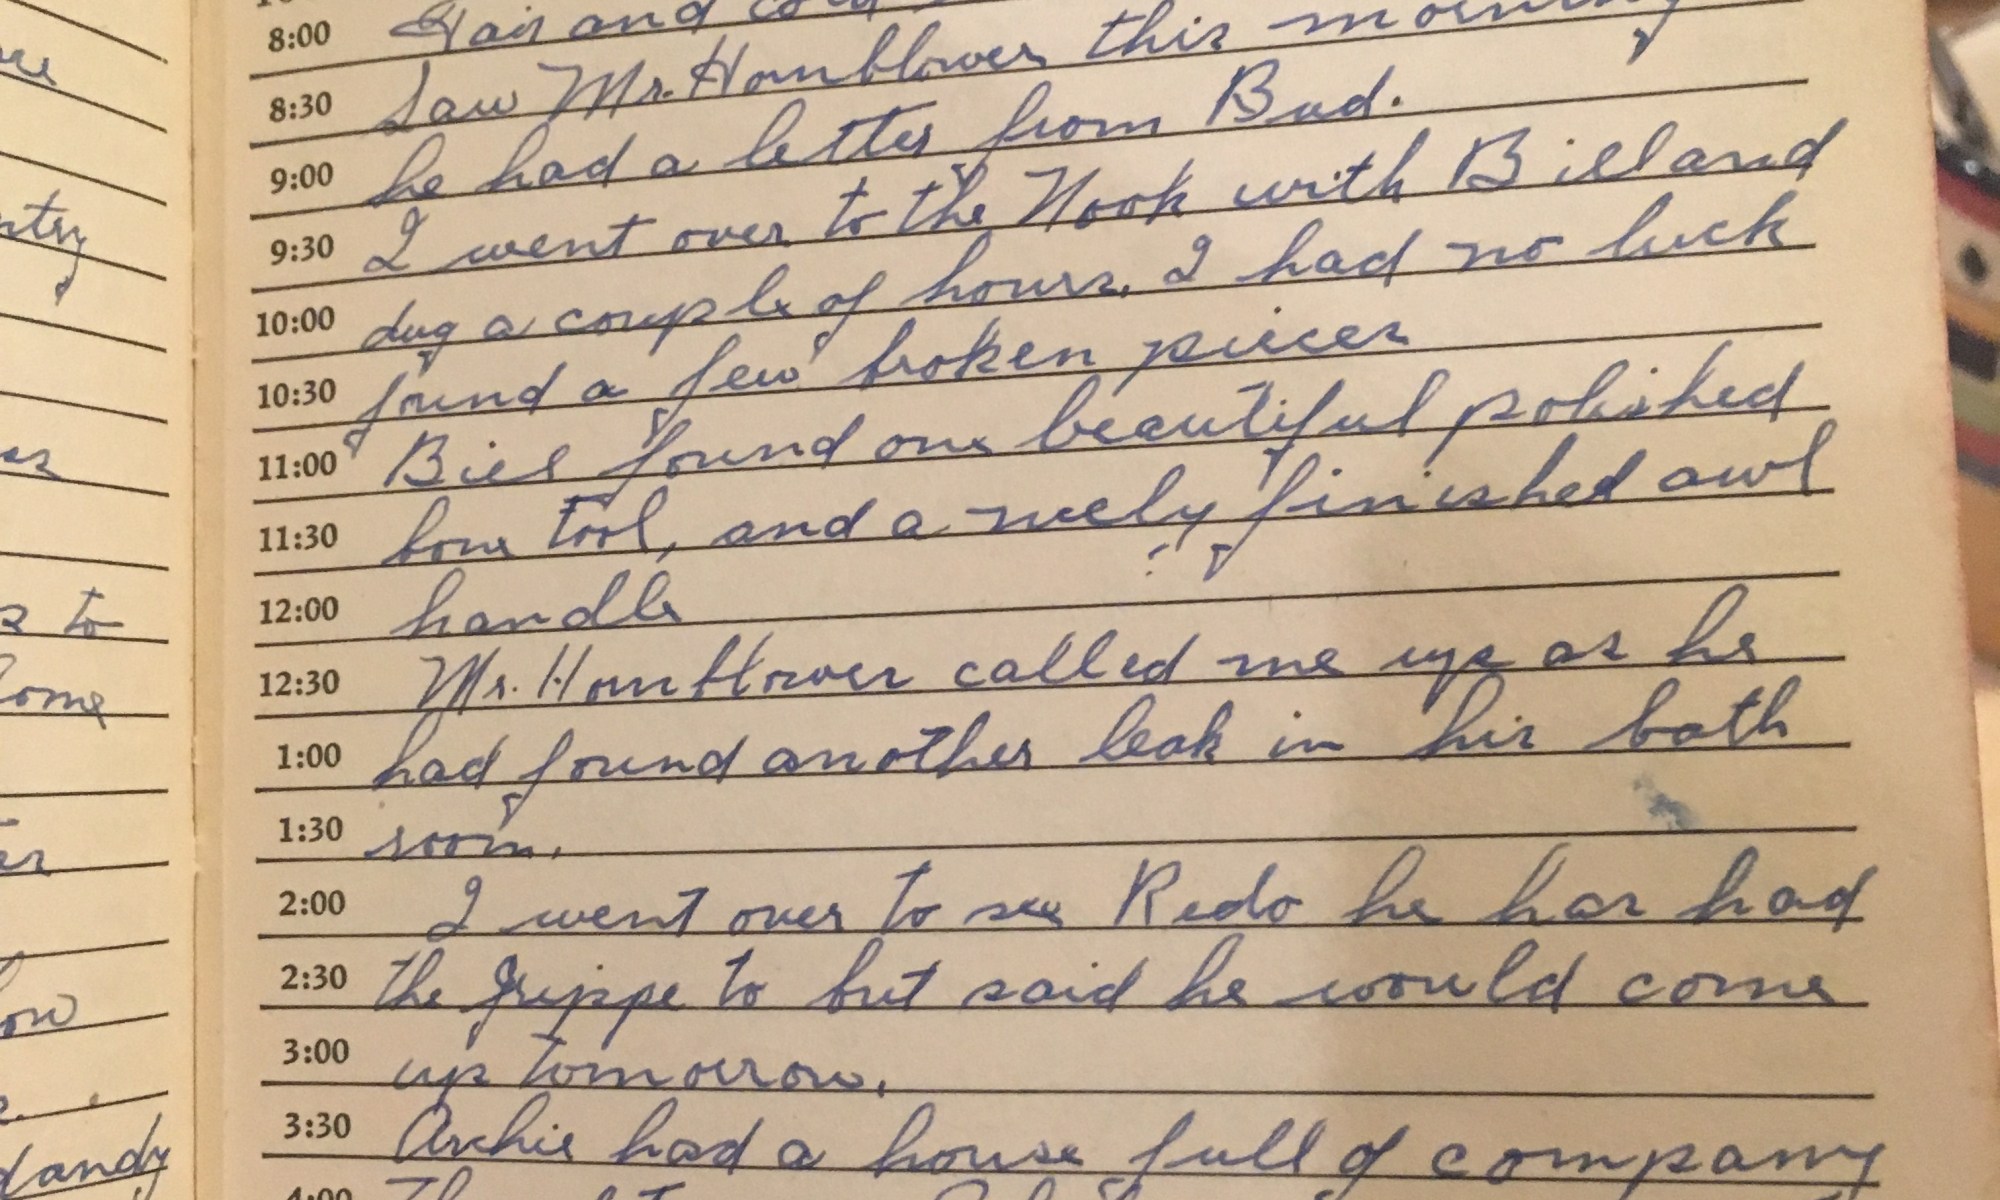 8:00 Fair and cold
8:30 Saw Mr. Hornblower this morning
9:00 he had a letter from Bud.
9:30 I went over to the Nook with Bill and
10:00 dug a couple of hours. I had no luck
10:30 found a few broken pieces
11:00 Bill found one beautiful polished
11:30 bone tool, and a nicely finished awl
12:00 handle
12:30 Mr. Hornblower called me up as he
1:00 had found another leak in his bath
1:30 room.
2:00 I went over to see Redo he has had
2:30 the Grippe to but said he would come
3:00 up tomorrow.
3:30 Archie had a house full of company
4:00
ntry
s to
ome
ow
dandy